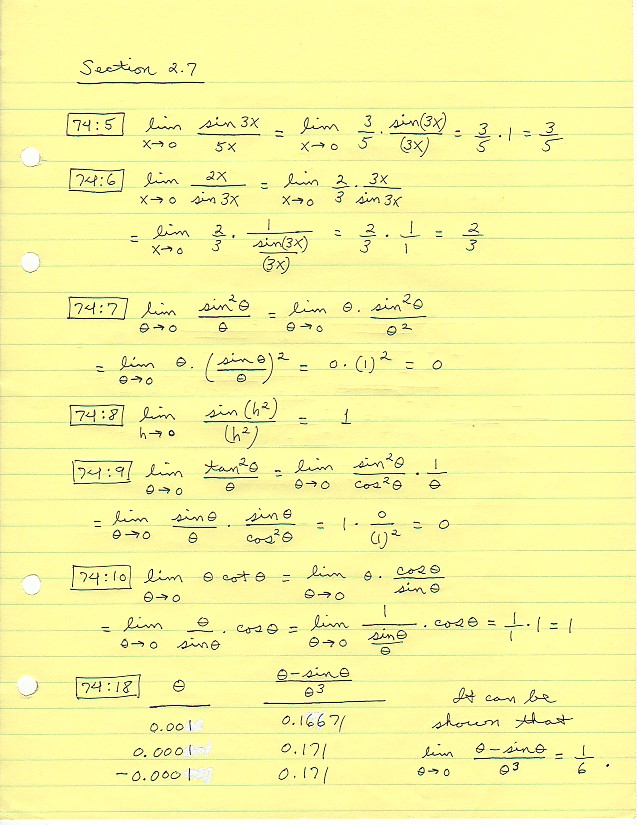 Section 2.7
74:5 lim x→0 sin 3x / 5x = lim x→0 3/5 · sin(3x)/(3x) = 3/5 · 1 = 3/5
74:6 lim x→0 2x / sin 3x = lim x→0 2/3 · 3x / sin 3x
= lim x→0 2/3 · 1 / (sin(3x)/(3x)) = 2/3 · 1/1 = 2/3
74:7 lim θ→0 sin²θ / θ = lim θ→0 θ · sin²θ / θ²
= lim θ→0 θ · (sin θ / θ)² = 0 · (1)² = 0
74:8 lim h→0 sin(h²) / (h²) = 1
74:9 lim θ→0 tan²θ / θ = lim θ→0 sin²θ / cos²θ · 1/θ
= lim θ→0 sin θ / θ · sin θ / cos²θ = 1 · 0/(1)² = 0
74:10 lim θ→0 θ cot θ = lim θ→0 θ · cos θ / sin θ
= lim θ→0 θ / sin θ · cos θ = lim θ→0 1 / (sin θ / θ) · cos θ = 1/1 · 1 = 1
74:18 θ θ - sin θ / θ³ It can be
0.001 0.16671 shown that
0.0001 0.171 lim θ→0 θ - sin θ / θ³ = 1/6 .
-0.0001 0.171